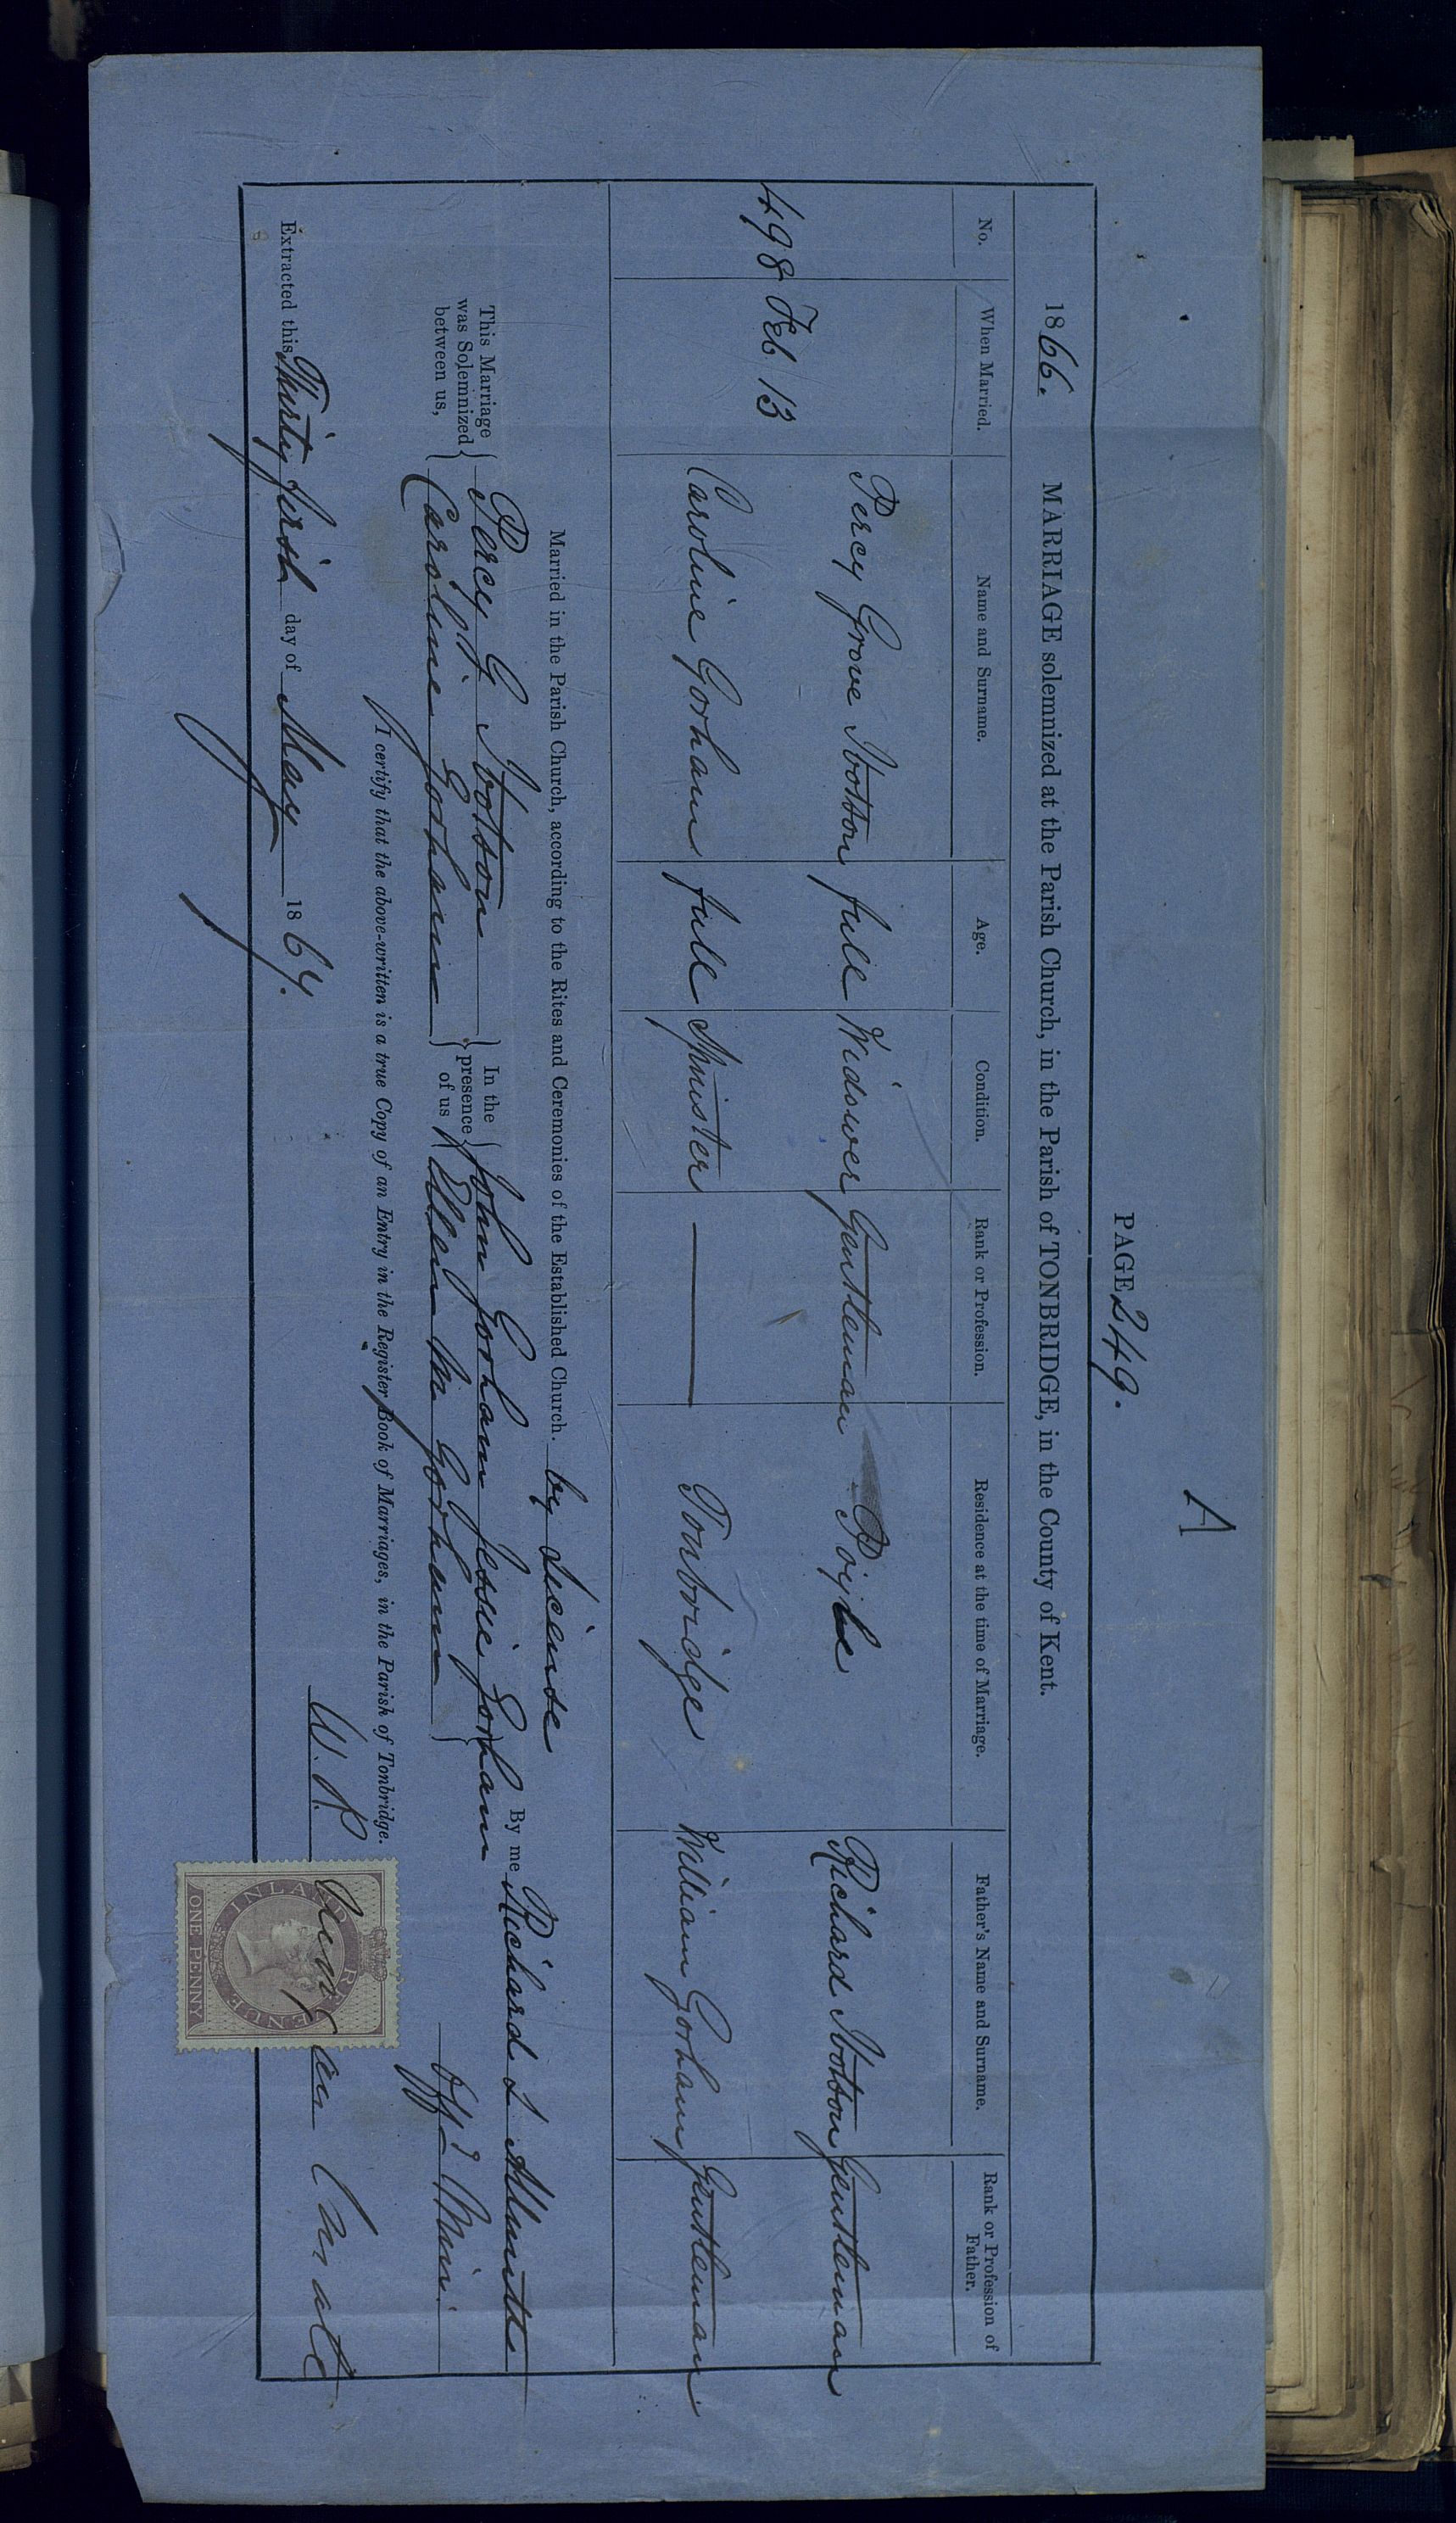 A
PAGE 249.
1866. MARRIAGE solemnized at the Parish Church, in the Parish of TONBRIDGE, in the County of Kent.
No. When Married. Name and Surname. Age. Condition. Rank or Profession. Residence at the time of Marriage. Father's Name and Surname. Rank or Profession of Father.
Percy Grove Ibotson full Widower Gentleman Poyle Richard Ibotson Gentleman
498 Feb 13
Caroline Gorham full Spinster Tonbridge William Gorham Gentleman
Married in the Parish Church, according to the Rites and Ceremonies of the Established Church. by License
By me Richard L Allnutt
Offg Mini.
This Marriage was Solemnized between us,
Percy G Ibotson
Caroline Gorham
In the presence of us
John Gorham Jessie Gorham
Ellen M Gorham
I certify that the above-written is a true Copy of an Entry in the Register Book of Marriages, in the Parish of Tonbridge.
W. R. Curate
INLAND REVENUE
ONE PENNY
Extracted this Thirty first day of May 1867.